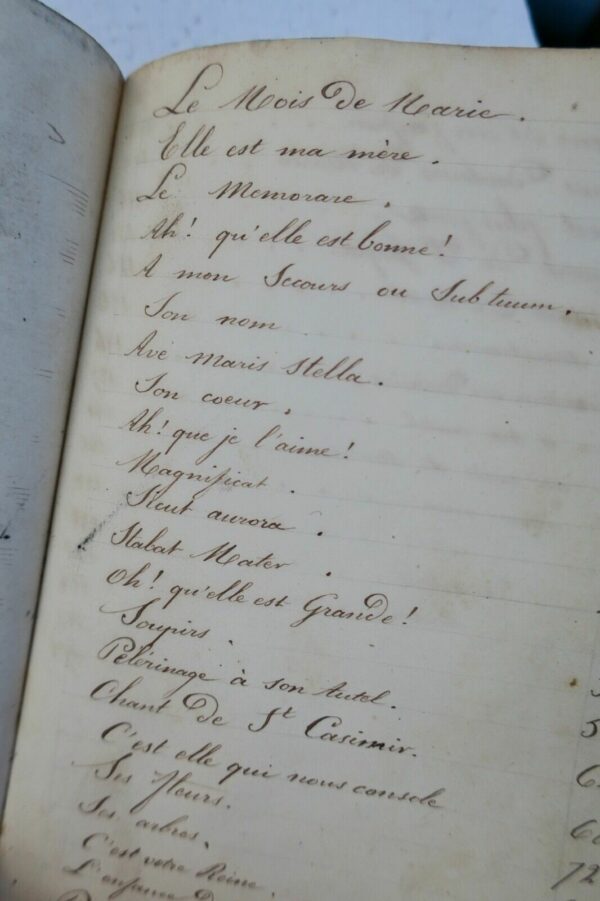 Le Mois de Marie.
Elle est ma mère.
Le Memorare.
Ah! qu'elle est bonne!
A mon Secours ou Sub tuum.
Son nom
Ave Maris Stella.
Son coeur.
Ah! que je l'aime!
Magnificat.
Sicut aurora.
Stabat Mater.
Oh! qu'elle est Grande!
Soupirs.
Pélérinage à son Autel.
Chant de St Casimir.
C'est elle qui nous console
Ses fleurs.
Ses arbres.
C'est votre Reine.
72
L'enfance